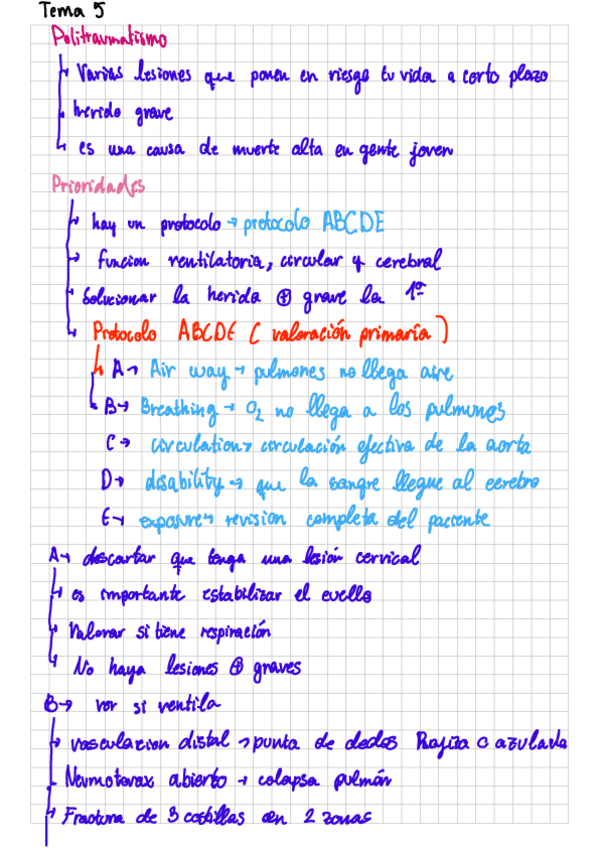 Tema 5
Politraumatismo
Varias lesiones que ponen en riesgo tu vida a corto plazo
herido grave
es una causa de muerte alta en gente joven
Prioridades
hay un protocolo → protocolo ABCDE
funcion ventilatoria, circular y cerebral
Solucionar la herida ⊕ grave la 1º
Protocolo ABCDE ( valoración primaria )
A → Air way → pulmones no llega aire
B → Breathing → O2 no llega a los pulmones
C → circulation → circulación efectiva de la aorta
D → disability → que la sangre llegue al cerebro
E → exposure → revision completa del paciente
A → descartar que tenga una lesión cervical
es importante estabilizar el cuello
Valorar si tiene respiración
No haya lesiones ⊕ graves
B → ver si ventila
vasculacion distal → punta de dedos Rojiza o azulada
Neumotorax abierto → colapsa pulmón
Fractura de 3 costillas en 2 zonas